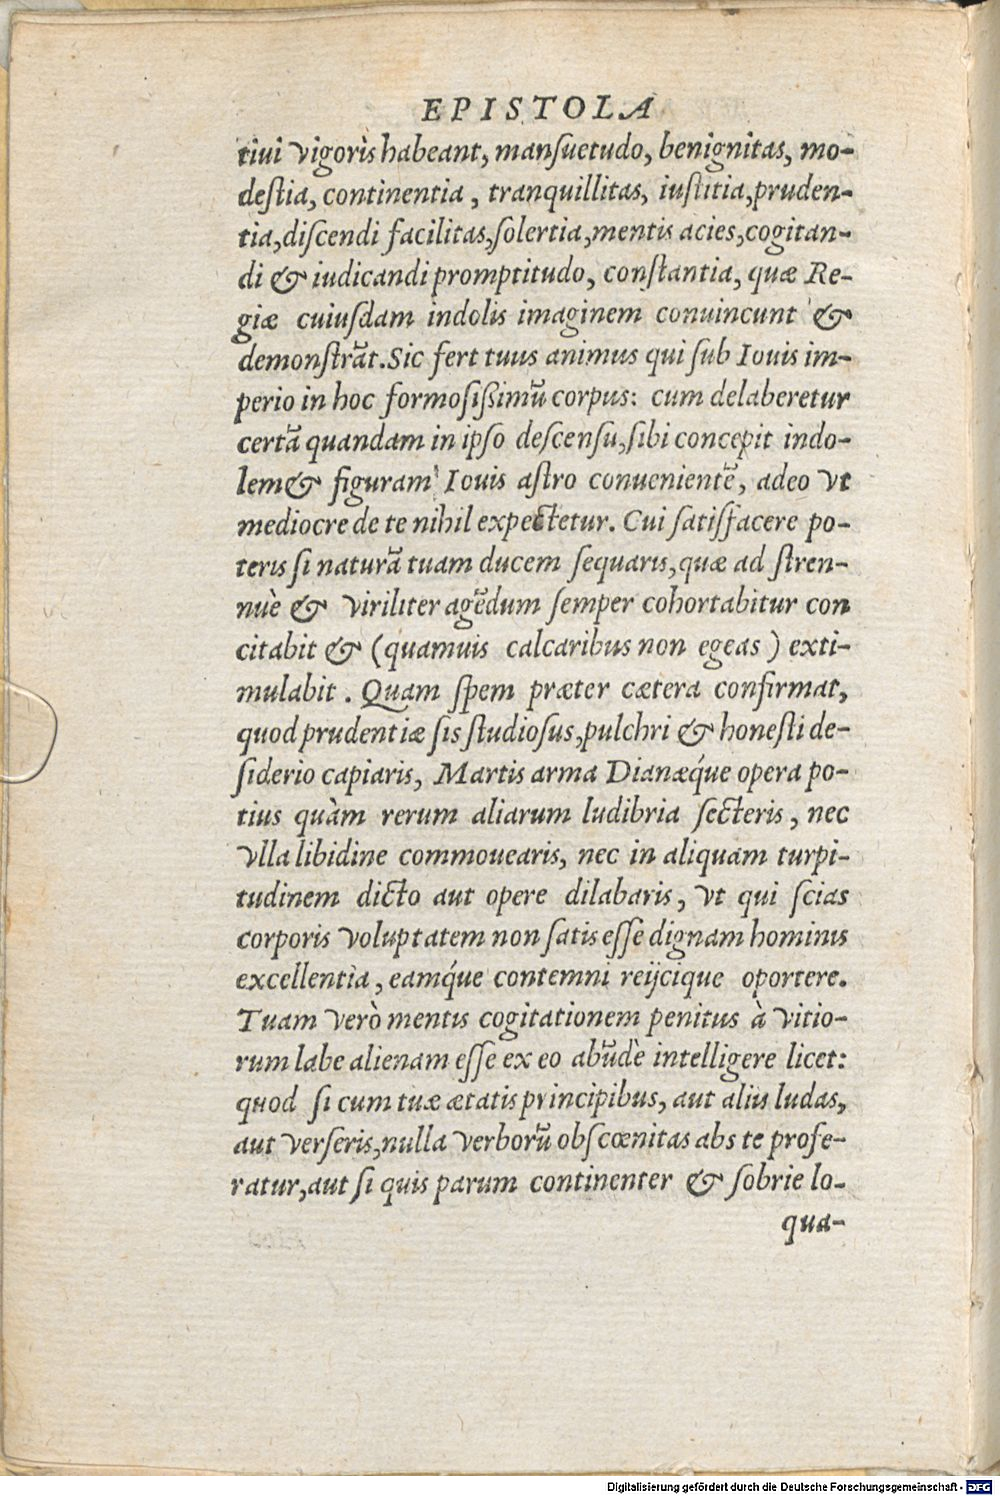 EPISTOLA
tiui vigoris habeant, mansuetudo, benignitas, mo-
destia, continentia, tranquillitas, iustitia, pruden-
tia, discendi facilitas, solertia, mentis acies, cogitan-
di & iudicandi promptitudo, constantia, quæ Re-
giæ cuiusdam indolis imaginem conuincunt &
demonstrāt. Sic fert tuus animus qui sub Iouis im-
perio in hoc formosißimū corpus: cum delaberetur
certā quandam in ipso descensu, sibi concepit indo-
lem & figuram Iouis astro conuenientē, adeo vt
mediocre de te nihil expectetur. Cui satisfacere po-
teris si naturā tuam ducem sequaris, quæ ad stren-
nuè & viriliter agēdum semper cohortabitur con
citabit & (quamuis calcaribus non egeas) exti-
mulabit. Quam spem præter cætera confirmat,
quod prudentiæ sis studiosus, pulchri & honesti de-
siderio capiaris, Martis arma Dianæq́ue opera po-
tius quàm rerum aliarum ludibria secteris, nec
vlla libidine commouearis, nec in aliquam turpi-
tudinem dicto aut opere dilabaris, vt qui scias
corporis voluptatem non satis esse dignam hominis
excellentia, eamq́ue contemni reijcique oportere.
Tuam verò mentis cogitationem penitus à vitio-
rum labe alienam esse ex eo abūdè intelligere licet:
quod si cum tuæ ætatis principibus, aut aliis ludas,
aut verseris, nulla verborū obscœnitas abs te profe-
ratur, aut si quis parum continenter & sobrie lo-
qua-
Digitalisierung gefördert durch die Deutsche Forschungsgemeinschaft - DFG